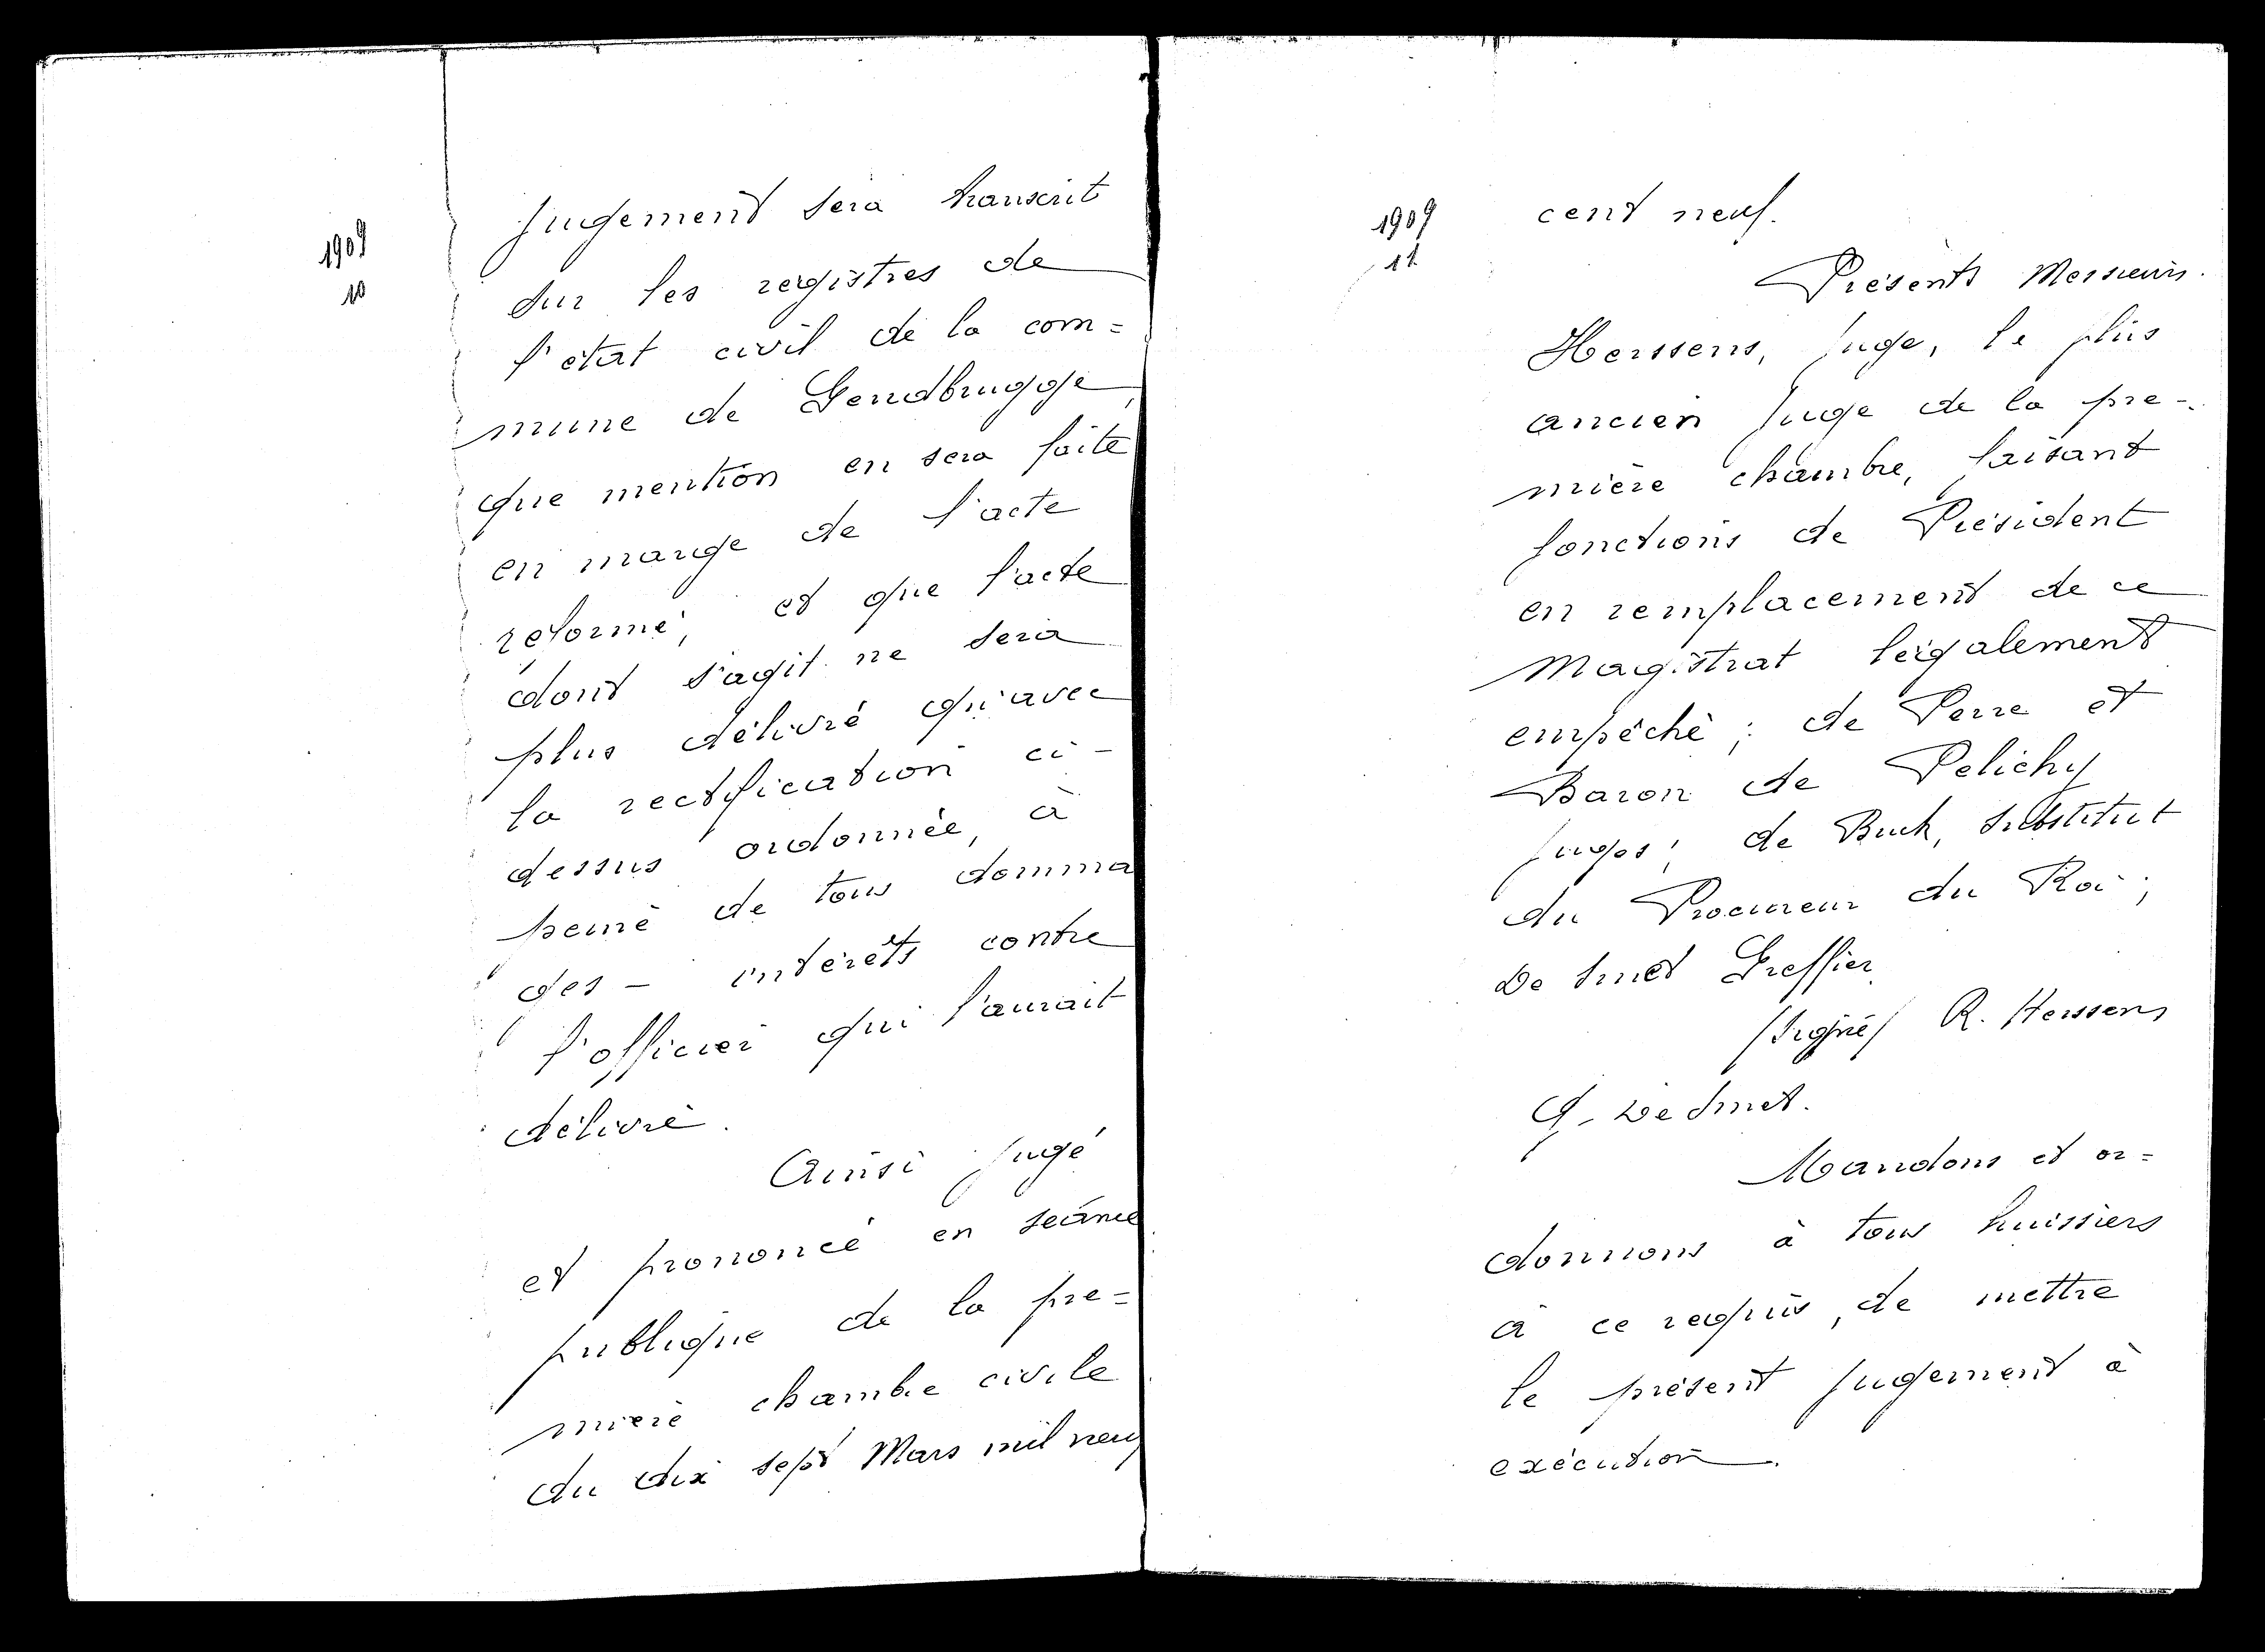 1909
10
jugement sera transcrit
sur les registres de
l'état civil de la com=
mune de Gendbrugge,
que mention en sera faite
en marge de l'acte
réformé, et que l'acte
dont s'agit ne sera
plus délivré qu'avec
la rectification ci-
dessus ordonnée, à
peine de tous domma
ges - intérêts contre
l'officier qui l'aurait
délivré.
Ainsi jugé
et prononcé en séance
publique de la pre=
mière chambre civile
du dix sept Mars mil neuf
1909
11
cent neuf.
Présents Messieurs
Herssens, juge, le plus
ancien juge de la pre-
mière chambre, faisant
fonctions de Président
en remplacement de ce
Magistrat légalement
empêché; de Perre et
Baron de Pelichy
juges; de Buck, substitut
du Procureur du Roi;
De Smet Greffier
/signé/ R. Herssens
De Smet.
Mandons et or=
donnons à tous huissiers
à ce requis, de mettre
le présent jugement à
exécution.